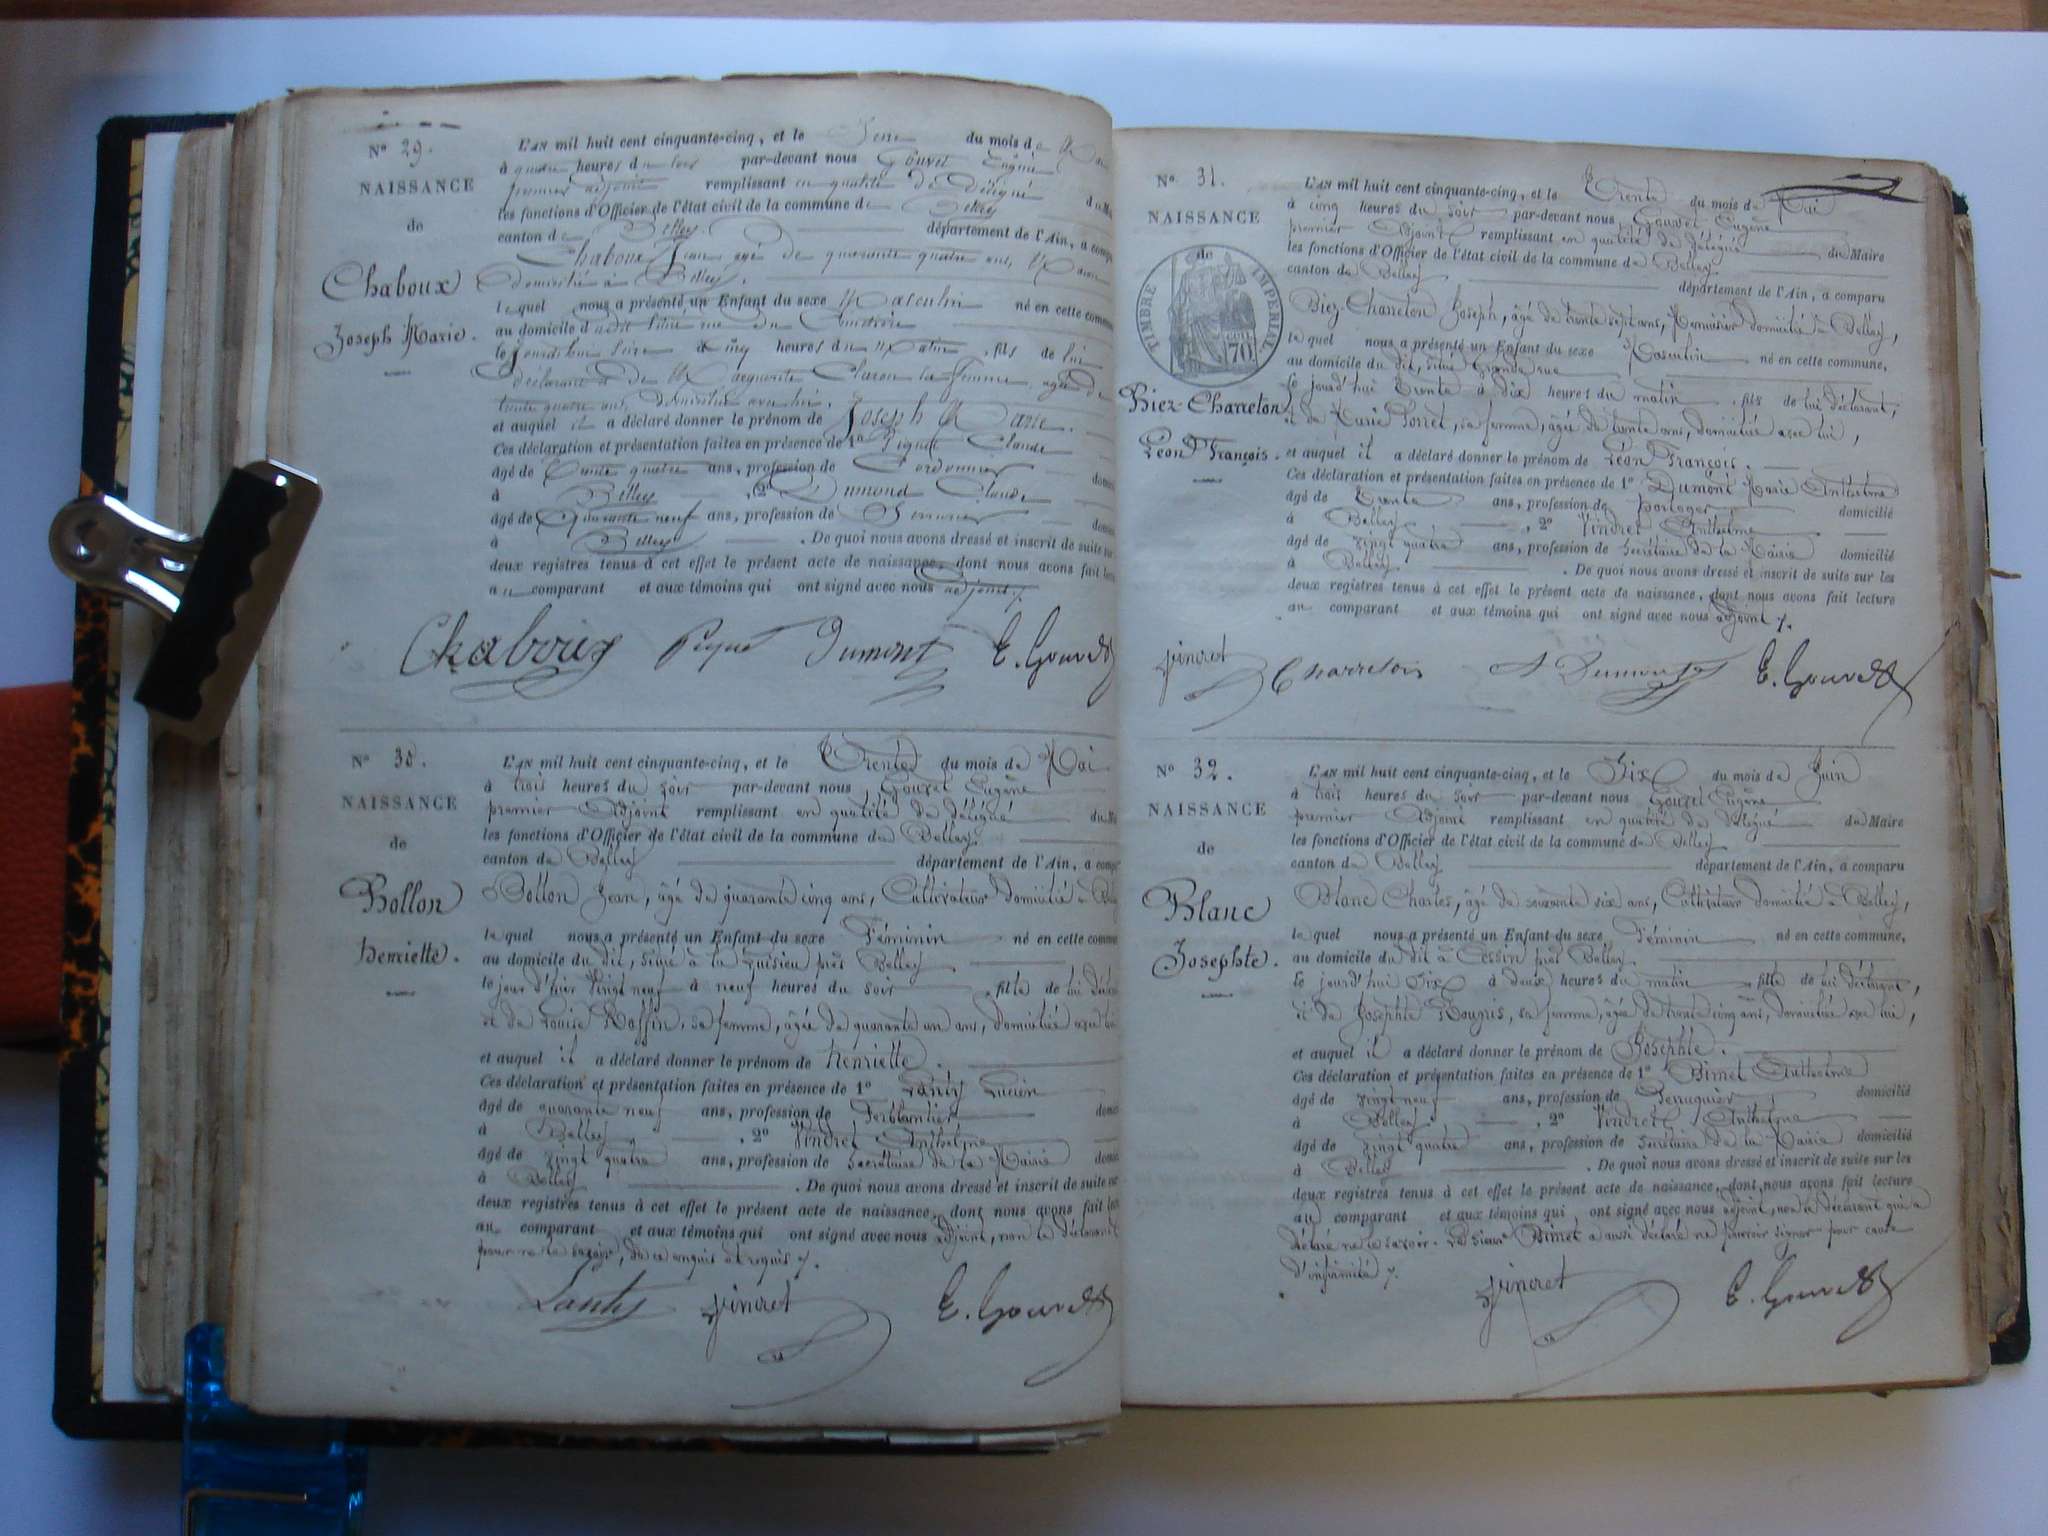 N° 29.
NAISSANCE
de
Chaboux
Joseph Marie.
L'AN mil huit cent cinquante-cinq, et le du mois de
à quatre heures du soir par-devant nous Gouvet Eugène
premier adjoint remplissant en qualité de délégué du
les fonctions d'Officier de l'état civil de la commune de Belley
canton de Belley. département de l'Ain, a
Chaboux Jean âgé de quarante quatre ans,
domicilié à Belley.
lequel nous a présenté un Enfant du sexe Masculin né en cette
au domicile
le à cinq heures du Matin, fils de lui
déclarant & de Marguerite Claron sa femme, agée de
trente quatre ans, domiciliée avec lui.
et auquel il a déclaré donner le prénom de Joseph Marie.
Ces déclaration et présentation faites en présence de 1° Claude
âgé de trente quatre ans, profession de Cordonnier
à Belley, 2° Dumond Claude
âgé de Quarante neuf ans, profession de Serrurier
à Belley. De quoi nous avons dressé et inscrit de suite
deux registres tenus à cet effet le présent acte de naissance, dont nous avons fait
au comparant et aux témoins qui ont signé avec nous adjoint.
Chaboux Dumont E. Gouvet
N° 30.
NAISSANCE
de
Bollon
henriette.
L'AN mil huit cent cinquante-cinq, et le Trente du mois de Mai
à trois heures du soir par-devant nous, Gouvet Eugène
premier Adjoint remplissant en qualité de délégué du
les fonctions d'Officier de l'état civil de la commune de Belley.
canton de Belley département de l'Ain, a
Bollon Jean, âgé de quarante cinq ans, Cultivateur domicilié à
lequel nous a présenté un Enfant du sexe Féminin né en cette
au domicile du dit, situé à près Belley
le jour d'hier Vingt neuf à neuf heures du soir, fille de lui
et de Louise Roffin, sa femme, âgée de quarante un ans, domiciliée avec
et auquel il a déclaré donner le prénom de henriette.
Ces déclaration et présentation faites en présence de 1° Lanty Lucien
âgé de quarante neuf ans, profession de Ferblantier
à Belley, 2° Vindret Anthelme
âgé de vingt quatre ans, profession de Secrétaire de la Mairie
à Belley. De quoi nous avons dressé et inscrit de suite
deux registres tenus à cet effet le présent acte de naissance, dont nous avons fait
au comparant et aux témoins qui ont signé avec nous adjoint, non le déclarant
pour ne le savoir, de ce enquis et requis.
Lanty Vindret E. Gouvet
N° 31.
NAISSANCE
de
TIMBRE IMPÉRIAL.
70
Biez-Charreton
Léon François.
L'AN mil huit cent cinquante-cinq, et le Trente du mois de Mai
à cinq heures du soir par-devant nous, Gouvet Eugène
premier Adjoint remplissant en qualité de délégué du Maire
les fonctions d'Officier de l'état civil de la commune de Belley.
canton de Belley département de l'Ain, a comparu
Biez-Charreton Joseph, âgé de trente sept ans, Menuisier domicilié à Belley,
lequel nous a présenté un Enfant du sexe Masculin né en cette commune,
au domicile du dit, situé Grande rue
le jourd'hui Trente à dix heures du matin, fils de lui déclarant,
et de Marie, sa femme, âgée de trente ans, domiciliée avec lui,
et auquel il a déclaré donner le prénom de Léon François.
Ces déclaration et présentation faites en présence de 1° Dumont Marie Anthelme
âgé de Trente ans, profession de horloger domicilié
à Belley, 2° Vindret Anthelme
âgé de vingt quatre ans, profession de Secrétaire de la Mairie domicilié
à Belley. De quoi nous avons dressé et inscrit de suite sur les
deux registres tenus à cet effet le présent acte de naissance, dont nous avons fait lecture
au comparant et aux témoins qui ont signé avec nous adjoint.
Vindret Charreton A Dumont E. Gouvet
N° 32.
NAISSANCE
de
Blanc
Josephte.
L'AN mil huit cent cinquante-cinq, et le Six du mois de Juin
à trois heures du soir par-devant nous Gouvet Eugène
premier Adjoint remplissant en qualité de délégué du Maire
les fonctions d'Officier de l'état civil de la commune de Belley
canton de Belley département de l'Ain, a comparu
Blanc Charles, âgé de soixante six ans, Cultivateur domicilié à Belley,
lequel nous a présenté un Enfant du sexe Féminin né en cette commune,
au domicile du dit à près Belley.
le jourd'hui Six à deux heures du matin, fille de lui déclarant,
et de Josephte, sa femme, âgée de trente cinq ans, domiciliée avec lui,
et auquel il a déclaré donner le prénom de Josephte.
Ces déclaration et présentation faites en présence de 1° Bimet Anthelme
âgé de vingt neuf ans, profession de Perruquier domicilié
à Belley, 2° Vindret Anthelme
âgé de vingt quatre ans, profession de Secrétaire de la Mairie domicilié
à Belley. De quoi nous avons dressé et inscrit de suite sur les
deux registres tenus à cet effet le présent acte de naissance, dont nous avons fait lecture
au comparant et aux témoins qui ont signé avec nous adjoint, non le déclarant qui a
déclaré ne le savoir. Le sieur Bimet a aussi déclaré ne pouvoir signer pour cause
d'infirmité.
Vindret E. Gouvet